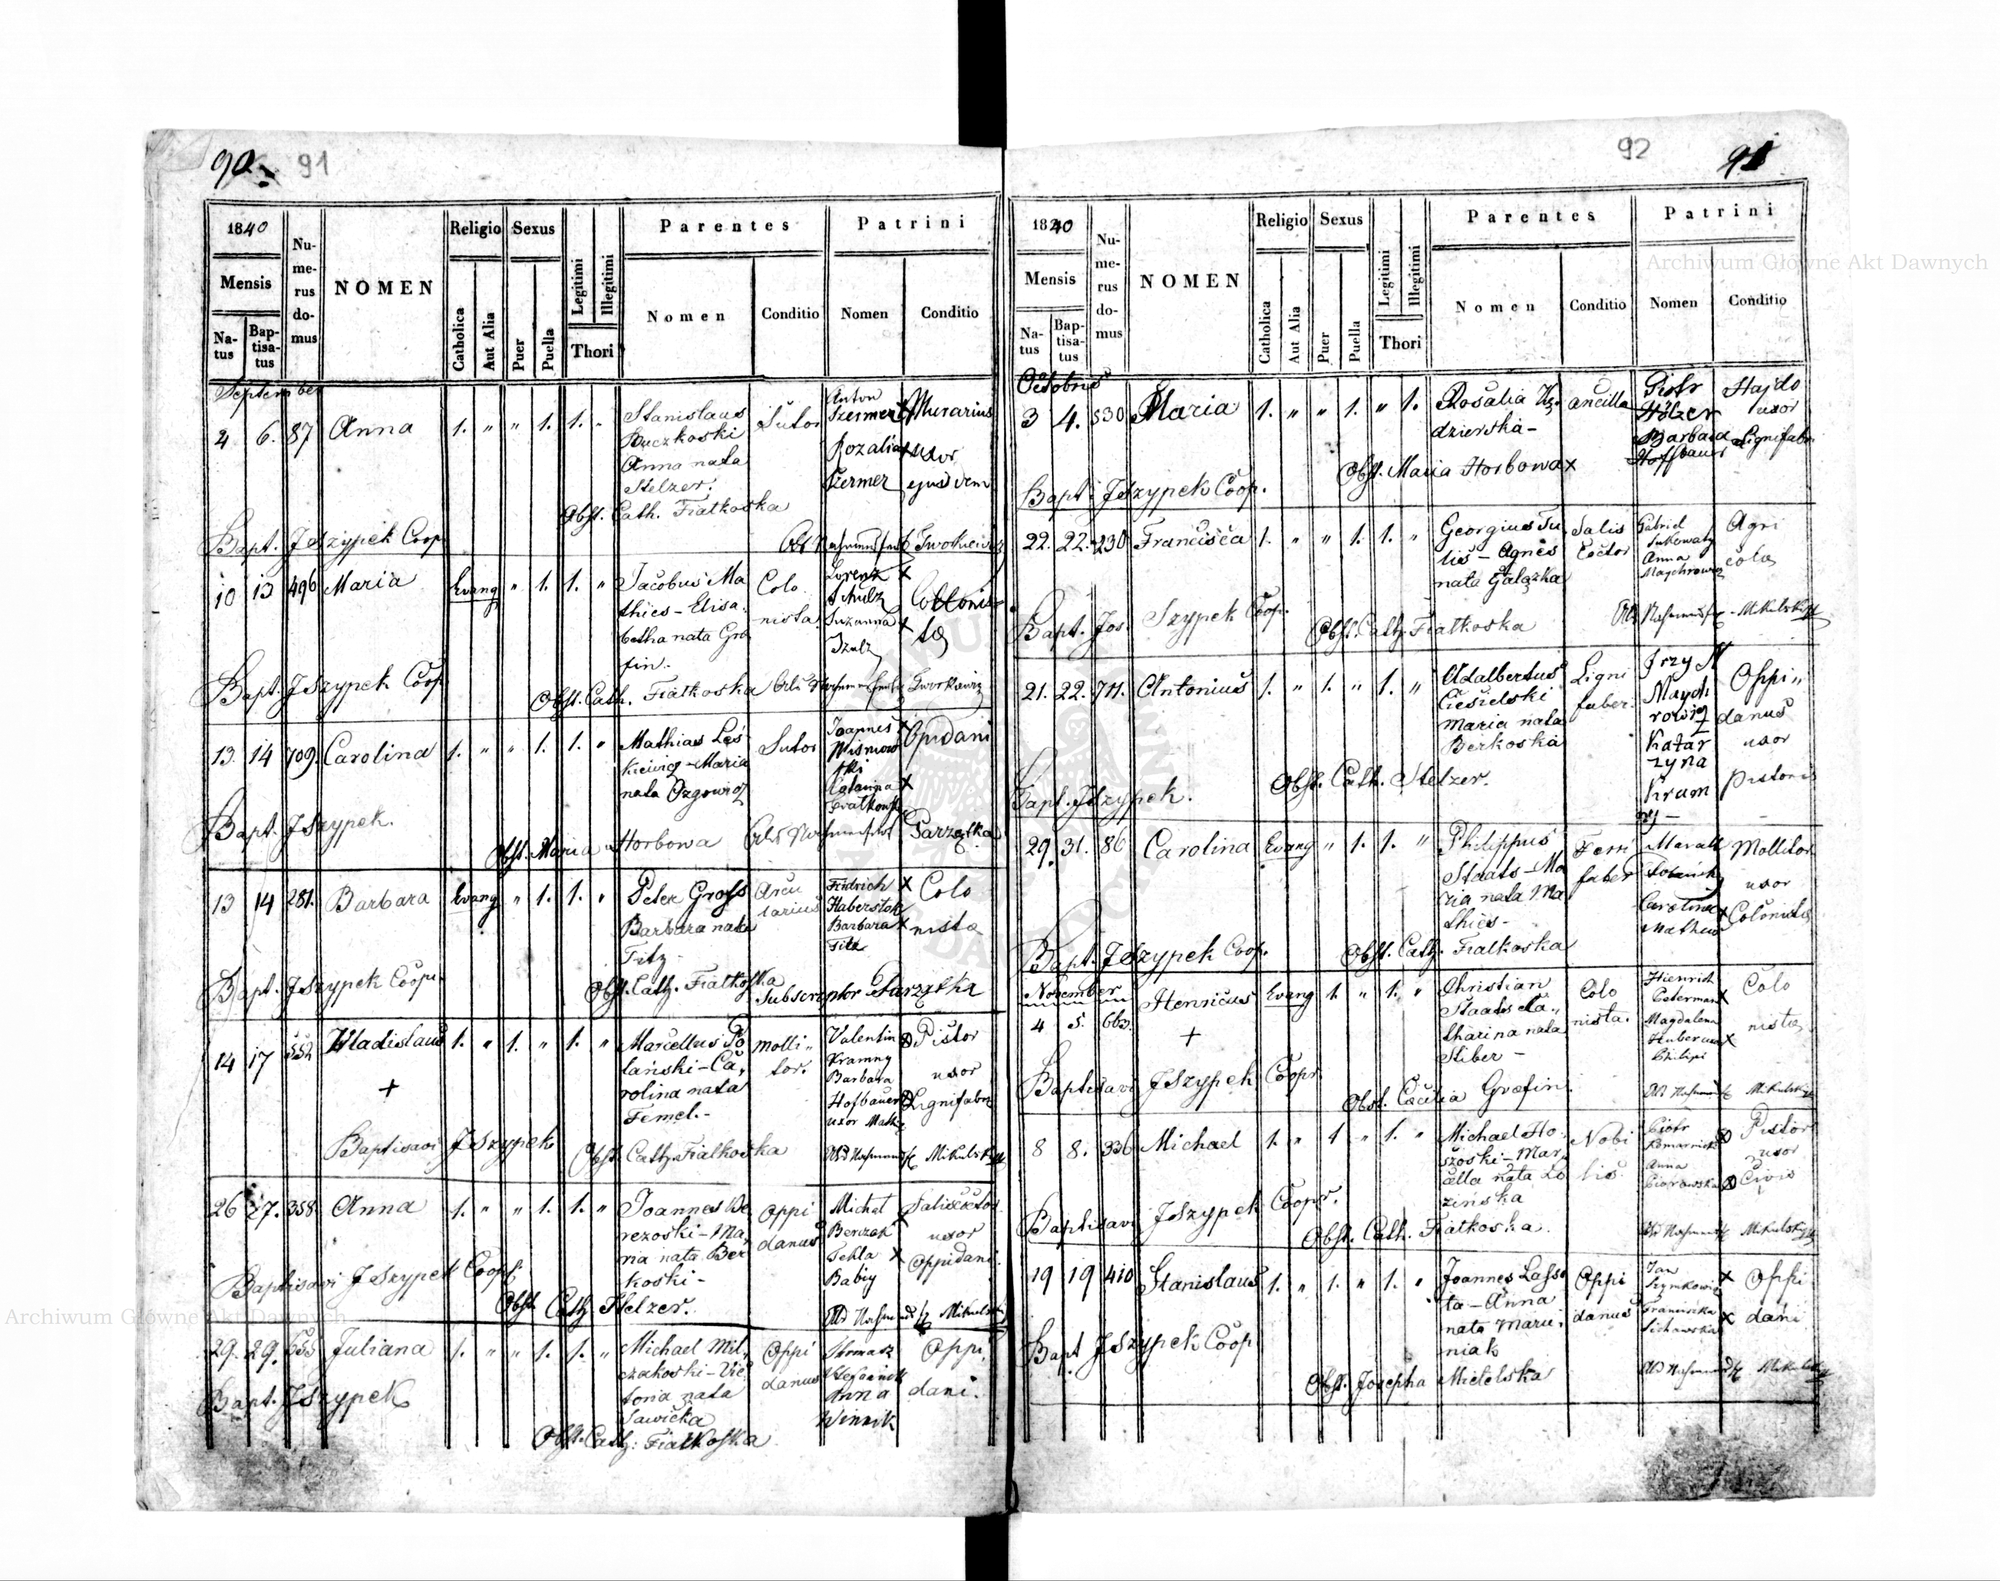 90. 91
1840
Mensis
Na-
tus
Bap-
tisa-
tus
Nu-
me-
rus
do-
mus
NOMEN
Religio
Catholica
Aut Alia
Sexus
Puer
Puella
Legitimi
Illegitimi
Thori
Parentes
Nomen
Conditio
Patrini
Nomen
Conditio
September
4 6. 87 Anna 1. " " 1. 1. "
Stanislaus
Buczkoski
Anna nata
Stelzer.
Sutor
Anton
Szermer
Rozalia
Szermer
Murarius
uxor
ejusdem
Obst. Cath. Fiatkoska
Bapt. JSzypek Coop.
10 13 496 Maria Evang " 1. 1. "
Jacobus Ma
thies - Elisa
betha nata Gra
fin.
Colo
nista
Lorenz
Schulz
Suzanna
Szulz
Collonis
tæ
Bapt. JSzypek Coop.
Obst. Cath. Fiatkoska
13. 14 709. Carolina 1. " " 1. 1. "
Mathias Les
kiewicz - Maria
nata Ozgowicz
Sutor
Joannes
Wisniow
ski
Opidani
Bapt. JSzypek.
Obst. Maria Horbowa
Parząłka
13 14 281. Barbara Evang " 1. 1. "
Peter Gross
Barbara nata
Fitz.
Arcu
larius
Fridrich
Haberstok
Barbara
Fitz
Colo
nistæ
Bapt. JSzypek Coop.
Obst. Cath. Fiatkoska
Subscreptor Parząłka
14 17 552 Wladislaus 1. " 1. " 1. "
+
Marcellus Po
lański - Ca,
rolina nata
Femel.-
molli
tor.
Valentin
Kramny
Barbara
Hofbauer
Pistor
uxor
Lignifabri
Baptisavi JSzypek
Obst. Cath. Fiatkoska
Mikulski
26 27. 358 Anna 1. " " 1. 1. "
Joannes Be
rezoski - Ma,
ria nata Ber
koski -
Oppi
danus
Michał
Berezok
Tekla
Babiy
Saliscoctor
uxor
Oppidani
Baptisavi JSzypek Coop.
Obst. Cath. Stelzer.
Mikulski
29. 29. 653 Juliana 1. " " 1. 1. "
Michael Mil,
czakoski - Vic
toria nata
Sawicka
Oppi
danus
Thomasz
Anna
Winnik
Oppi,
dani.
Bapt. JSzypek
Obst. Cath. Fiatkoska
92 91
1840
Mensis
Na-
tus
Bap-
tisa-
tus
Nu-
me-
rus
do-
mus
NOMEN
Religio
Catholica
Aut Alia
Sexus
Puer
Puella
Legitimi
Illegitimi
Thori
Parentes
Nomen
Conditio
Patrini
Nomen
Conditio
Octobris
3 4. 530 Maria 1. " " 1. " 1.
Rosalia
dzierska -
ancilla
Piotr
Hölzer
Barbara
Hoffbauer
Hajdo
uxor
Lignifabri
Obst. Maria Horbowa x
Bapt. JSzypek Coop.
22. 22. 230 Francisca 1. " " 1. 1. "
Georgius Ju
lis - Agnes
nata Gałązka
Salis
Coctor
Gabriel
Anna
Majchrowicz
Agri
colæ
Bapt. Jos. Szypek Coop.
Obst. Cath. Fiatkoska
Mikulski
21. 22. 711. Antonius 1. " 1. " 1. "
Adalbertus
Ciesielski
Maria nata
Berkoska
Ligni
faber.
Jrzy
Maych
rowicz
Katar
zyna
Kram
Oppi,,
danus
uxor
pistoris
Obst. Cath. Stelzer.
Bapt. JSzypek.
29. 31. 86 Carolina Evang " 1. 1. "
Philippus
Staats - Ma
ria nata Ma
thies -
Ferri
faber
Carolina
Mollitor
uxor
Colonistæ
Bapt. JSzypek Coop.
Obst. Cath. Fiatkoska
November
4 5. 663. Henricus Evang 1. " 1. "
+
Christian
Staats Ca,,
tharina nata
Stiber -
Colo
nista.
Hienrich
Osterman
Magdalena
Huberman
Philipi
Colo
nistæ
Baptisavi JSzypek Coopr.
Obst. Cacilia Grafin.
Mikulski
8 8. 336 Michael 1. " 1 " 1. "
Michael Ho,
szoski - Mar
cella nata Lo
zinska
Nobi
lis
Piotr
Komarnicki
Anna
Pistor
uxor
Civis
Baptisavi JSzypek Coopr.
Obst. Cath. Fiatkoska.
Mikulski
19 19 410 Stanislaus 1. " 1. " 1. "
Joannes Lasso
ta - Anna
nata Maru,
niak
Oppi
danus
Jan
Szymkowicz
Franciszka
Oppi
dani
Bapt JSzypek Coop.
Obst. Josepha Mielelska
Archiwum Główne Akt Dawnych
Archiwum Główne Akt Dawnych